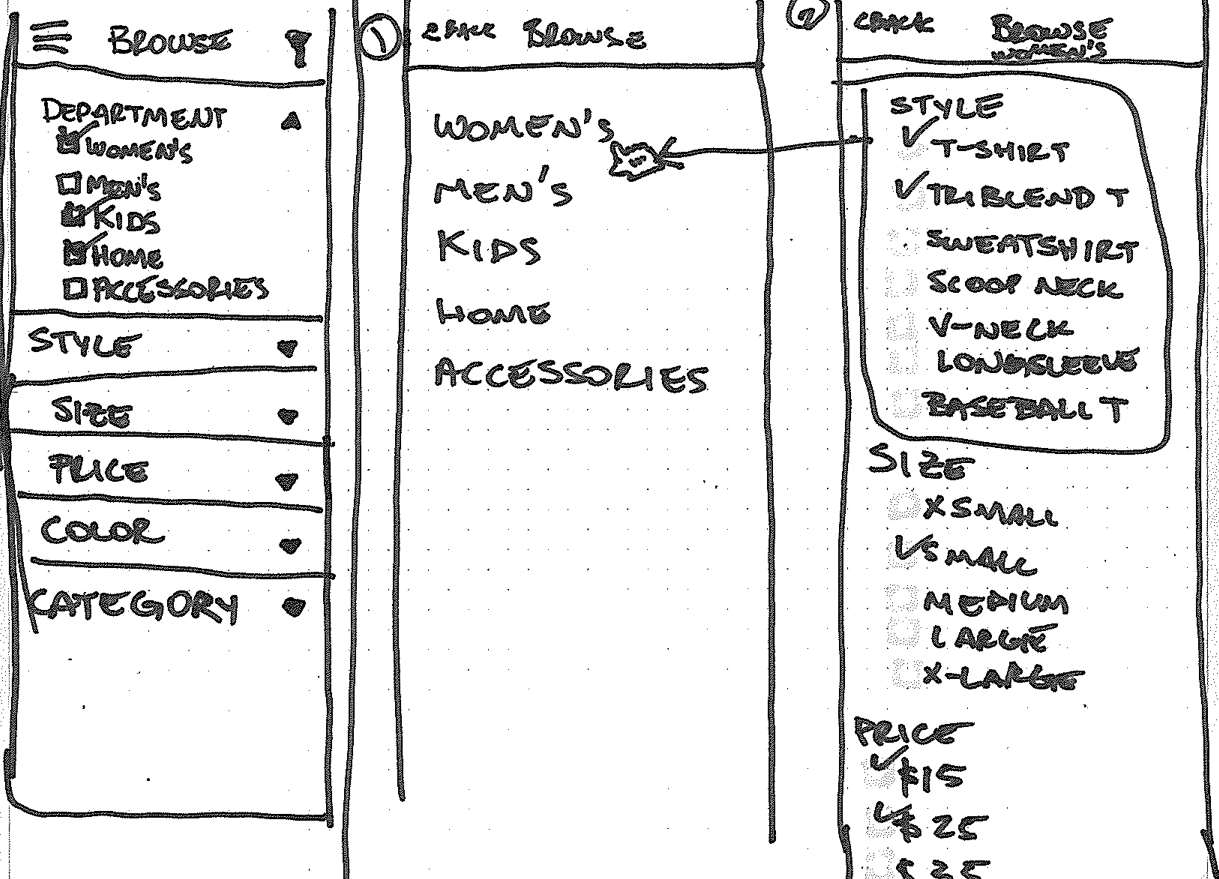 BROWSE
DEPARTMENT
WOMEN'S
MEN'S
KIDS
HOME
ACCESSORIES
STYLE
SIZE
PRICE
COLOR
CATEGORY
1
BACK BROWSE
WOMEN'S
MEN'S
KIDS
HOME
ACCESSORIES
2
BACK BROWSE
WOMEN'S
STYLE
T-SHIRT
TRIBLEND T
SWEATSHIRT
SCOOP NECK
V-NECK
LONGSLEEVE
BASEBALL T
SIZE
XSMALL
SMALL
MEDIUM
LARGE
X-LARGE
PRICE
$15
$25
$35